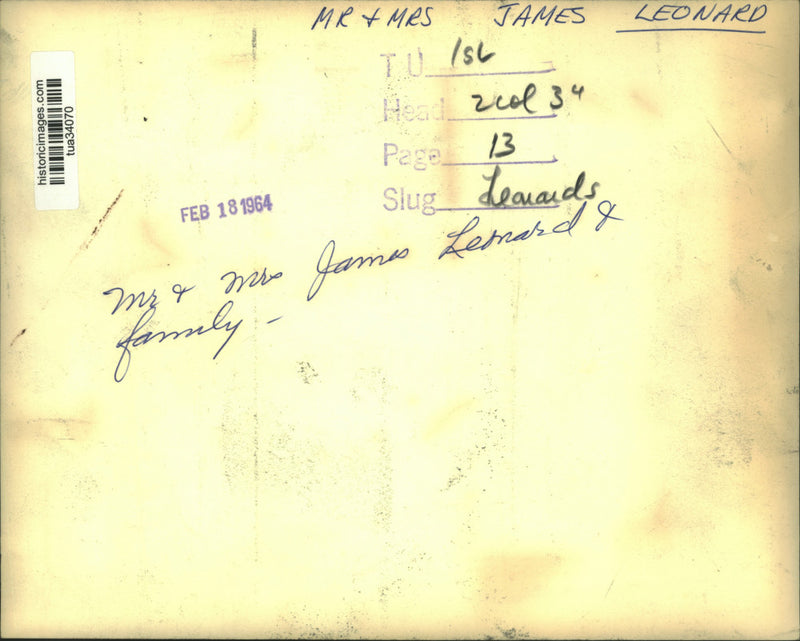 MR & MRS JAMES LEONARD
T U 1st
Head 2 col 3"
Page 13
Slug Leonards
historicimages.com
tua34070
FEB 18 1964
Mr & Mrs James Leonard &
family -